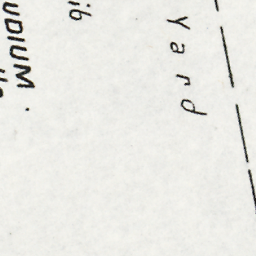 Yard
ib
UDIUM